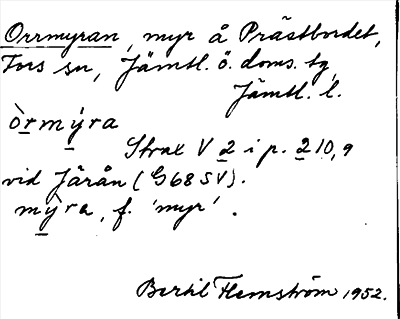 Orrmyran, myr å Prästbordet,
Fors sn, Jämtl. ö. doms. tg,
Jämtl. l.
òrmỳra
Strax V 2 i p. 210,9
vid Järån (G68SV).
mỳra, f. 'myr'.
Bertil Flemström 1952.